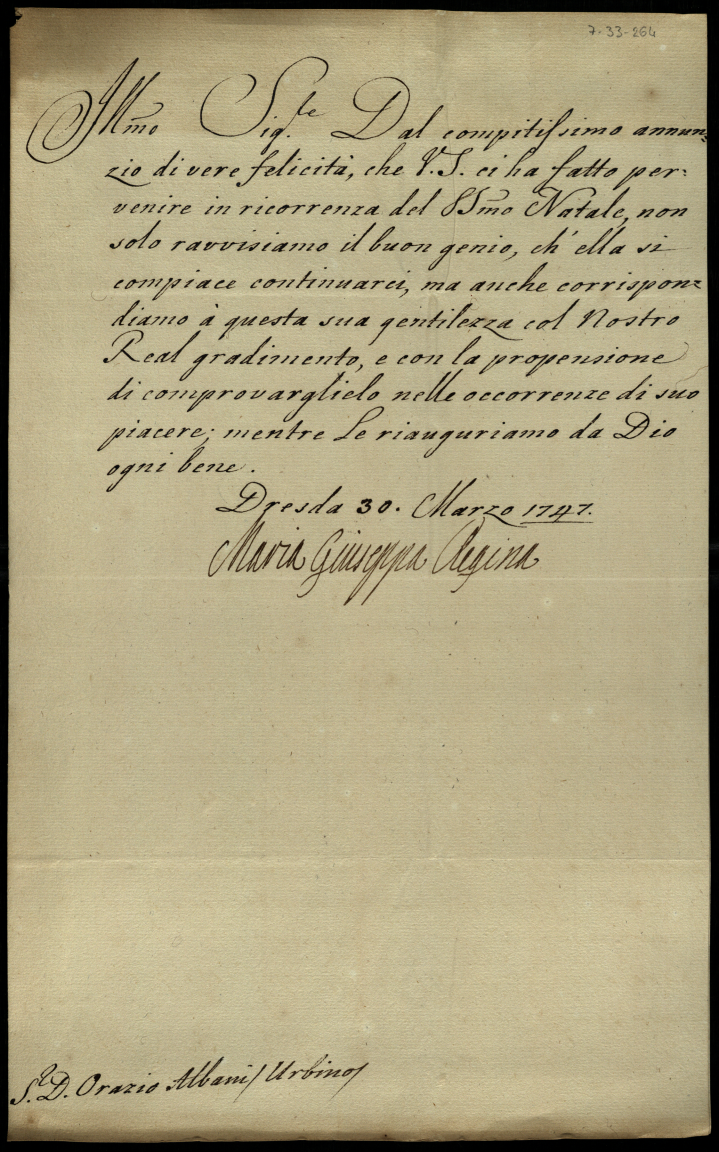 7-33-264
Illmo Sig.re Dal compitissimo annun=
zio di vere felicità, che V.S. ci ha fatto per=
venire in ricorrenza del SSmo Natale, non
solo ravvisiamo il buon genio, ch' ella si
compiace continuarci, ma anche corrispon=
diamo à questa sua gentilezza col Nostro
Real gradimento, e con la propensione
di comprovarglielo nelle occorrenze di suo
piacere; mentre Le riauguriamo da Dio
ogni bene.
Dresda 30. Marzo 1747.
Maria Giuseppa Regina
S.r D. Orazio Albani/ Urbino/